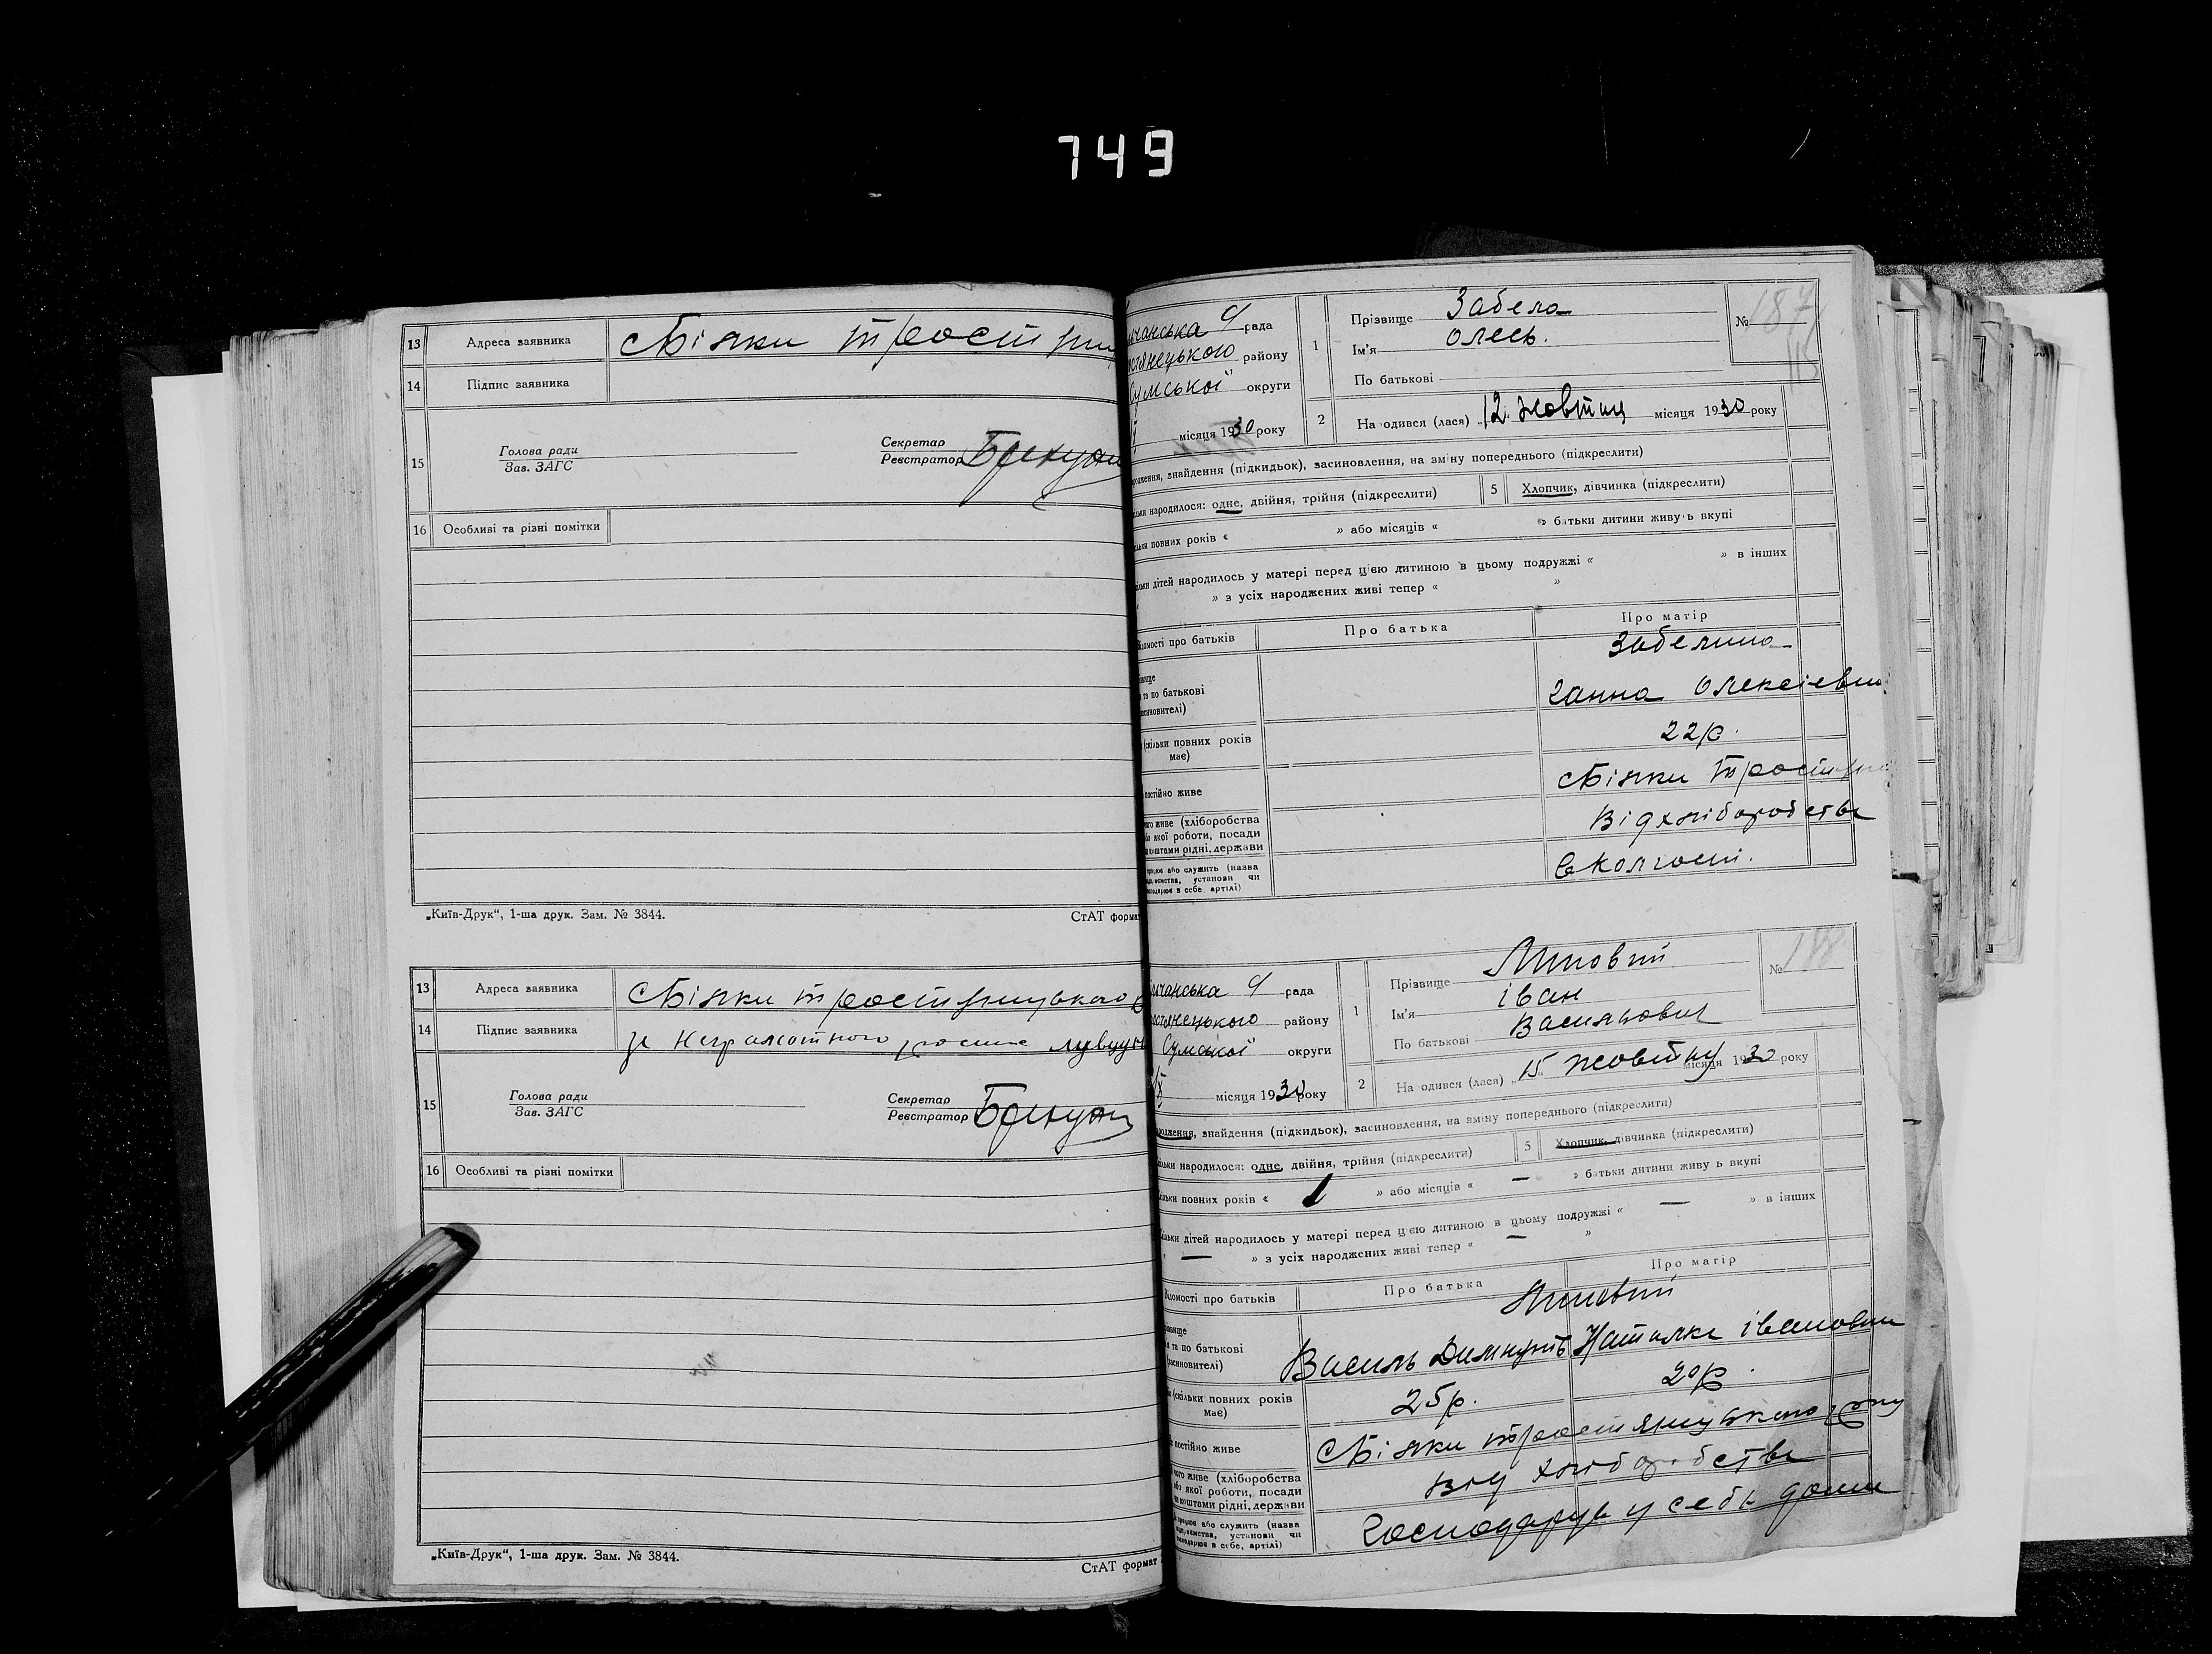 749
13 Адреса заявника с Білки трости
14 Підпис заявника
15 Голова ради
Зав. ЗАГС
Секретар
Реєстратор
16 Особливі та різні помітки
„Київ-Друк“, 1-ша друк. Зам. № 3844.
СтАТ форма
13 Адреса заявника с Білки
14 Підпис заявника за неграмотного
15 Голова ради
Зав. ЗАГС
Секретар
Реєстратор
16 Особливі та різні помітки
„Київ-Друк“, 1-ша друк. Зам. № 3844.
СтАТ формат
чанська с/ рада
стянецького району
Сумської округи
місяця 1930 року
1 Прізвище Забела
Ім'я Олесь.
По батькові
№ 187
2 На одився (лася) „12 жовтня місяця 1930 року
родження, знайдення (підкидьок), засиновлення, на зміну попереднього (підкреслити)
ільки народилося: одне, двійня, трійня (підкреслити) 5 Хлопчик, дівчинка (підкреслити)
ільки повних років « » або місяців « » батьки дитини живуть вкупі
ільки дітей народилось у матері перед цією дитиною в цьому подружжі « » в інших
» з усіх народжених живі тепер « »
ідомості про батьків Про батька Про матір
звище
та по батькові
синовителі)
Забелина
Ганна Олексіевна
(скільки повних років
має)
22 р.
постійно живе с Білки
ого живе (хліборобства
бо якої роботи, посади
и коштами рідні, держави
Від хліборобства
працює або служить (назва
ідприємства, установи чи
господарює в себе, артілі)
В колгоспі.
ичанська с/ рада
остянецького району
Сумської округи
місяця 1930 року
1 Прізвище Липовий
Ім'я Іван
По батькові Васильович
№ 188
2 На одився (лася) „15 жовтня місяця 1930 року
родження, знайдення (підкидьок), засиновлення, на зміну попереднього (підкреслити)
ільки народилося: одне, двійня, трійня (підкреслити) 5 Хлопчик, дівчинка (підкреслити)
ільки повних років « 1 » або місяців « — » батьки дитини живу ь вкупі
ільки дітей народилось у матері перед цією дитиною в цьому подружжі « — » в інших
« — » з усіх народжених живі тепер « — »
ідомості про батьків Про батька Про матір
Липовий
звище
та по батькові
синовителі)
Василь Наталка Івановна
(скільки повних років
має)
25 р. 20 р.
постійно живе с Білки тростянецького р-ну
ого живе (хліборобства
або якої роботи, посади
и коштами рідні, держави
від хліборобства
працює або служить (назва
ідприємства, установи чи
господарює в себе, артілі)
Господарує у себе дома